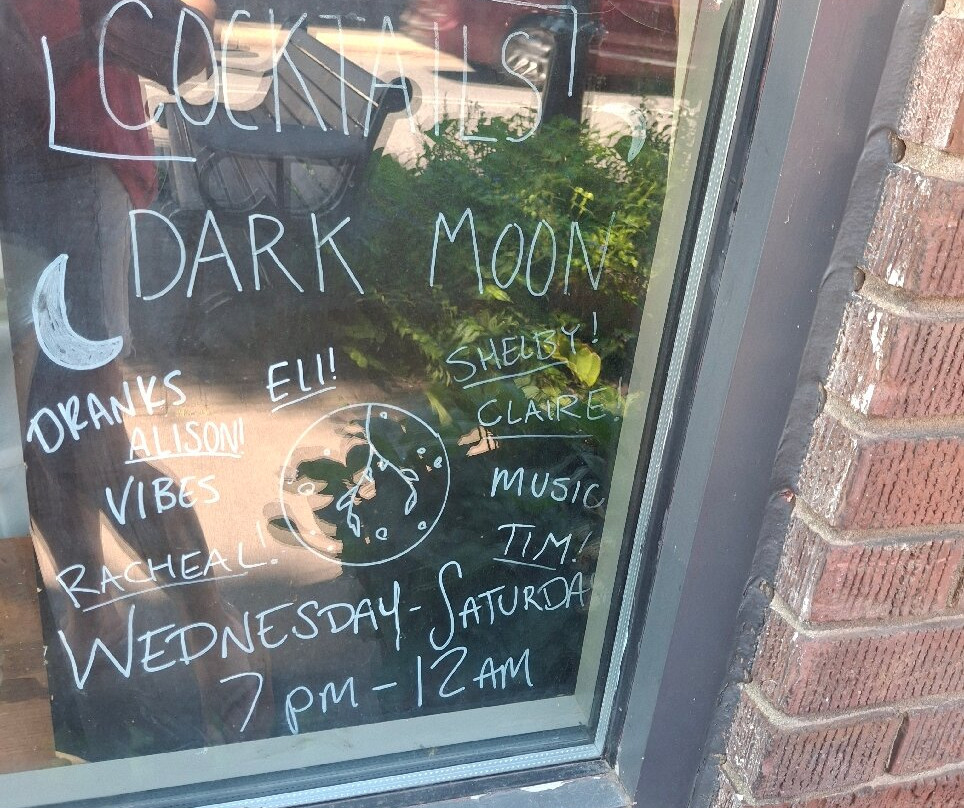 COCKTAILS
DARK MOON
SHELBY!
ELI!
DRANKS
CLAIRE!
ALISON!
VIBES
MUSIC
TIM!
RACHEAL!
WEDNESDAY-SATURDA
7PM-12AM